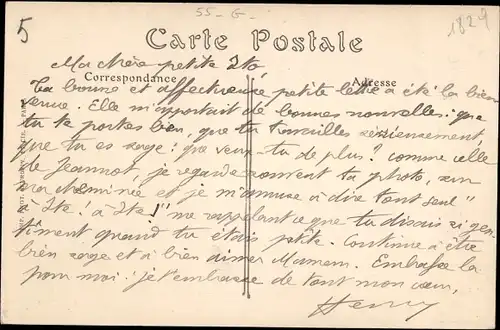 5
55-G-
1829
Carte Postale
Ma chère petite Ité
Correspondance
Adresse
Ta bonne et affectueuse petite lettre a été la bien
venue. Elle m'apportait de bonnes nouvelles: que
tu te portes bien, que tu travailles sérieusement,
que tu es sage: que veux-tu de plus? comme celle
de Jeannot, je regarde souvent ta photo, sur
ma cheminée et je m'amuse à dire tout seul
"à Ité! à Ité!" me rappelant ce que tu disais si gen
timent quand tu étais petite. Continue à être
bien sage et à bien aimer Maman. Embrasse la
pour moi: je t'embrasse de tout mon cœur,
Henry